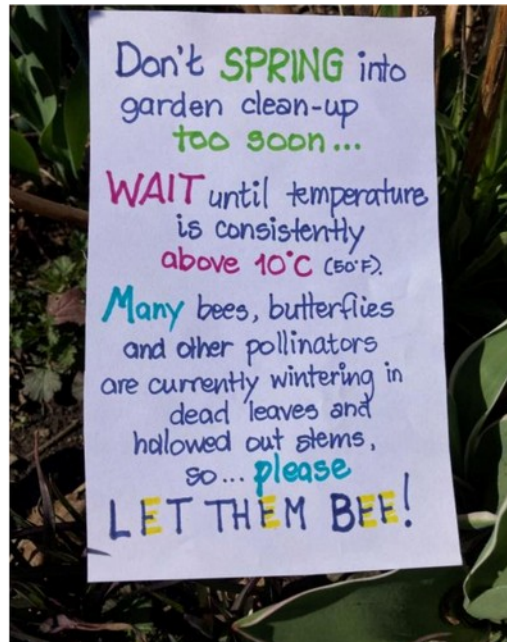 Don't SPRING into
garden clean-up
too soon...
WAIT until temperature
is consistently
above 10°C (50°F).
Many bees, butterflies
and other pollinators
are currently wintering in
dead leaves and
hallowed out stems,
so... please
LET THEM BEE!